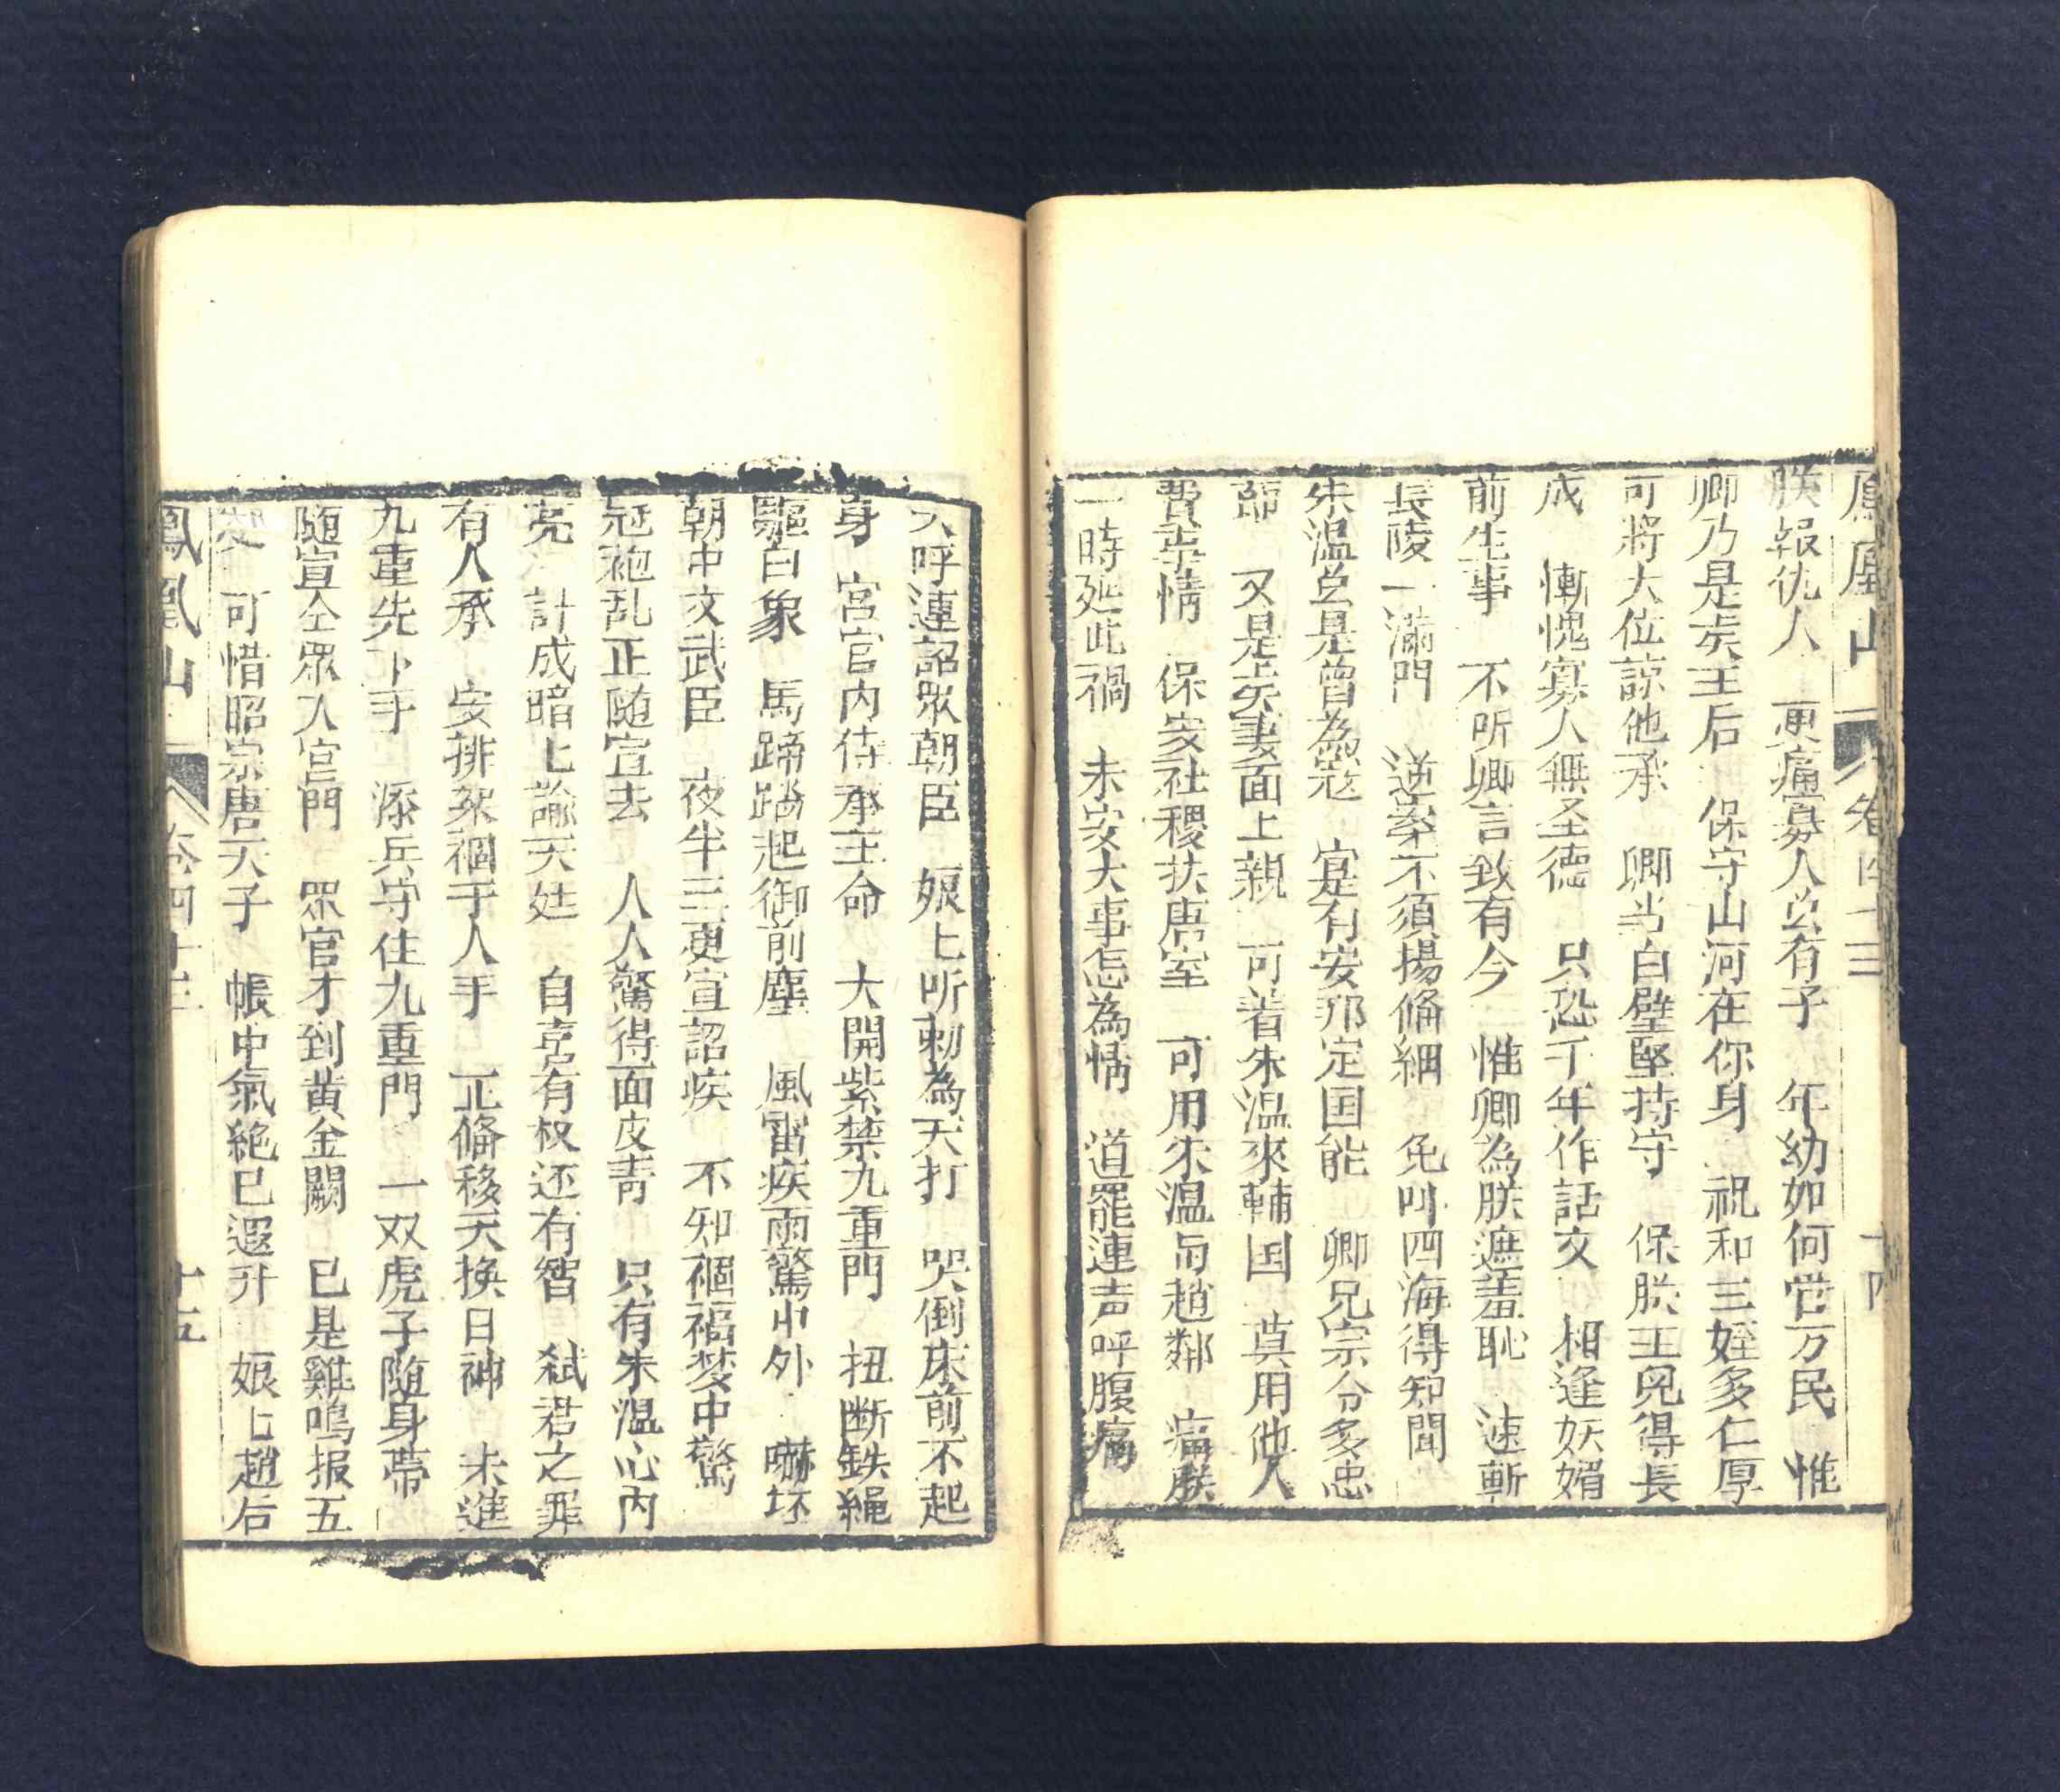 鳳凰山 卷四十三 十四
朕報仇人 更痛寡人公有子 年幼如何管万民 惟
卿乃是表王后 保守山河在你身 祝和三姪多仁厚
可將大位諒他承 卿当白璧堅持守 保朕王兒得長
成 慚愧寡人無圣德 只恐千年作話文 相逢妖媚
前生事 不听卿言致有今 惟卿為朕遮羞恥 速斬
長陵一滿門 逆案不須揚俻細 免叫四海得知聞
朱温总是曾為寇 寔有安邦定国能 卿兄宗分多忠
節 又是岳妻面上親 可着朱温來輔国 莫用他人
費孝情 保安社稷扶唐室 可用朱温与趙鄰 痛朕
一時延此禍 未安大事怎為情 道罷連声呼腹痛
大呼連詔眾朝臣 娘匕听勅為天打 哭倒床前不起
身 宮官内侍奉主命 大開紫禁九重門 扭断鉄繩
驅白象 馬蹄踏起御前塵 風雷疾雨驚中外 嚇坏
朝中文武臣 夜半三更宣詔疾 不知禍福夢中驚
冠袍乱正随宣去 人人驚得面皮青 只有朱温心内
亮 計成暗匕謝天廷 自言有权还有智 弑君之罪
有人承 安排泉禍于人手 正俻移天换日神 未進
九重先下手 添兵守住九重門 一双虎子随身帶
随宣仝眾入宮門 眾官才到黄金闕 已是雞鳴报五
更 可惜昭宗唐天子 帳中氣絶已遐升 娘匕趙后
鳳凰山 卷四十三 十五